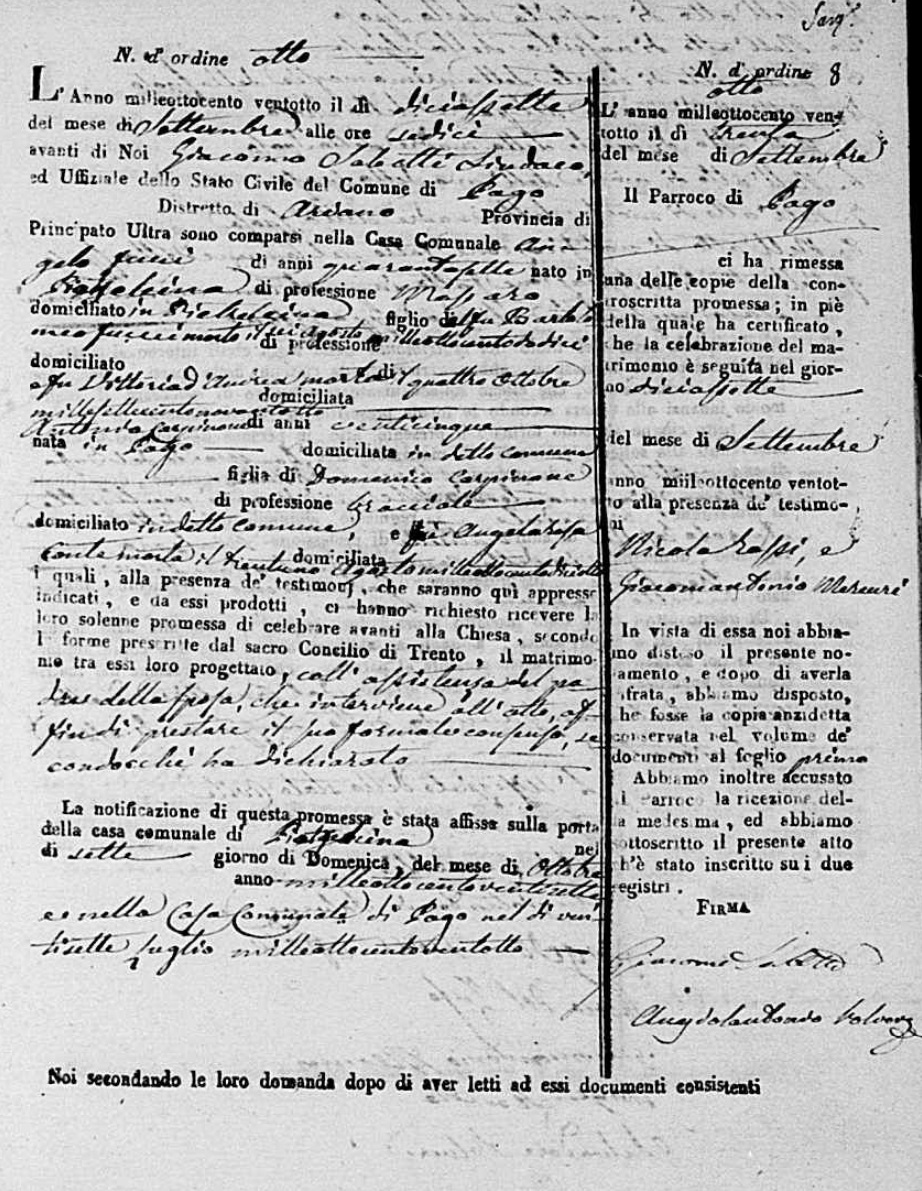 N. d'ordine otto
L'Anno milleottocento ventotto il dì diciassette
del mese di Settembre alle ore sedici
avanti di Noi Giacomo Sabatti Sindaco,
ed Uffiziale dello Stato Civile del Comune di Pago
Distretto di Ariano Provincia di
Principato Ultra sono comparsi nella Casa Comunale An
gelo fucci di anni quarantasette nato in
di professione Massaro
domiciliato in figlio del fu Bartolo
meo fucci morto il sei agosto milleottocentododici
di professione
domiciliato di
e fu Vittoria d'Andrea morta il quattro Ottobre
domiciliata
millesettecentonovantotto
Antonia Carpinone di anni venticinque
nata in Pago domiciliata in detto comune
figlia di Domenico Carpinone
di professione bracciale
domiciliato in detto comune, e fu Angelarosa
domiciliata
Conte morta il trentuno Agosto
i quali, alla presenza de' testimonj, che saranno quì appresse
indicati, e da essi prodotti, ci hanno richiesto ricevere la
loro solenne promessa di celebrare avanti alla Chiesa, secondo
le forme prescritte dal sacro Concilio di Trento, il matrimo-
nio tra essi loro progettato, coll'assistenza del pa
dre della sposa, che interviene all'atto, af-
fin di prestare il suo formale consenso, se
condocchè ha dichiarato
La notificazione di questa promessa è stata affissa sulla porta
della casa comunale di nel
di sette giorno di Domenica, del mese di Ottobre
anno milleottocentoventisette
e nella Casa Comunale di Pago nel dì ven-
tisette Luglio milleottocentoventotto
Noi secondando le loro domanda dopo di aver letti ad essi documenti consistenti
N. d' ordine 8
otto
L' anno milleottocento ven-
totto il dì trenta
del mese di Settembre
Il Parroco di Pago
ci ha rimessa
una delle copie della con-
troscritta promessa; in piè
della quale ha certificato,
che la celebrazione del ma-
trimonio è seguita nel gior-
no diciassette
del mese di Settembre
anno milleottocento ventot-
to alla presenza de' testimo-
ni
Nicola Rossi, e
Giacomantonio Mercuri
In vista di essa noi abbia-
mo disteso il presente no-
tamento, e dopo di averla
cifrata, abbiamo disposto,
che fosse la copia anzidetta
conservata nel volume de'
documenti al foglio primo
Abbiamo inoltre accusato
al Parroco la ricezione del-
la medesima, ed abbiamo
sottoscritto il presente atto
ch'è stato inscritto su i due
registri.
FIRMA
Giacomo Sabatti